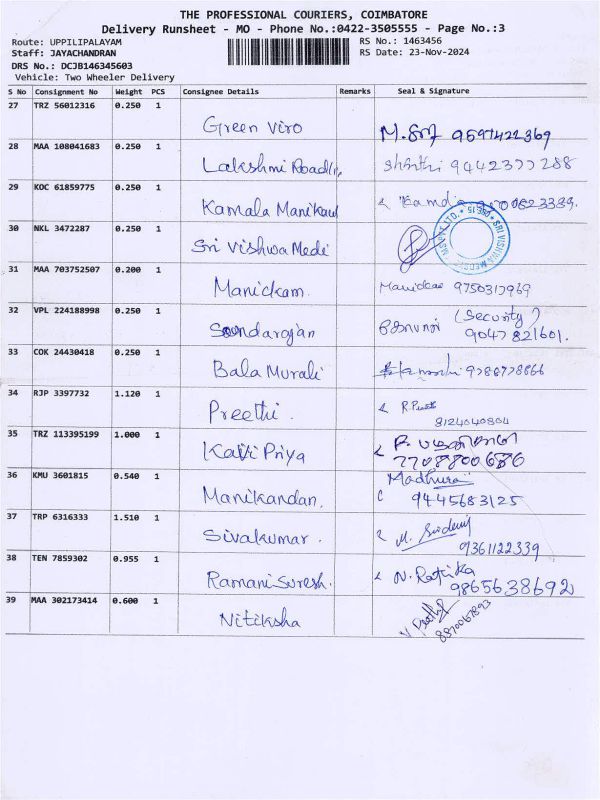 THE PROFESSIONAL COURIERS, COIMBATORE
Delivery Runsheet - MO - Phone No.:0422-3505555 - Page No.:3
Route: UPPILIPALAYAM RS No.: 1463456
Staff: JAYACHANDRAN RS Date: 23-Nov-2024
DRS No.: DCJB146345603
Vehicle: Two Wheeler Delivery
S No Consignment No Weight PCS Consignee Details Remarks Seal & Signature
27 TRZ 56012316 0.250 1
Green Viro M. 9597422369
28 MAA 108041683 0.250 1
Lakshmi Roadlin Shanthi 9442377288
29 KOC 61859775 0.250 1
Kamala Manikand
30 NKL 3472287 0.250 1
Sri Vishwa Medi SRI VISHWA MEDISEC MS PVT. LTD.
31 MAA 703752507 0.200 1
Manickam. 9750317969
32 VPL 224188998 0.250 1 (Security)
Soundarajan 9047821601.
33 COK 24430418 0.250 1
Bala Murali 9788778866
34 RJP 3397732 1.120 1
Preethi. R. 8124040804
35 TRZ 113395199 1.000 1
Kavi Priya 7708800686
36 KMU 3601815 0.540 1 Madhura
Manikandan. 9445683125
37 TRP 6316333 1.510 1
Sivakumar. M. 9361122339
38 TEN 7859302 0.955 1
Ramani Suresh. N. Rathika 9865638692
39 MAA 302173414 0.600 1
Nitiksha 8870067893